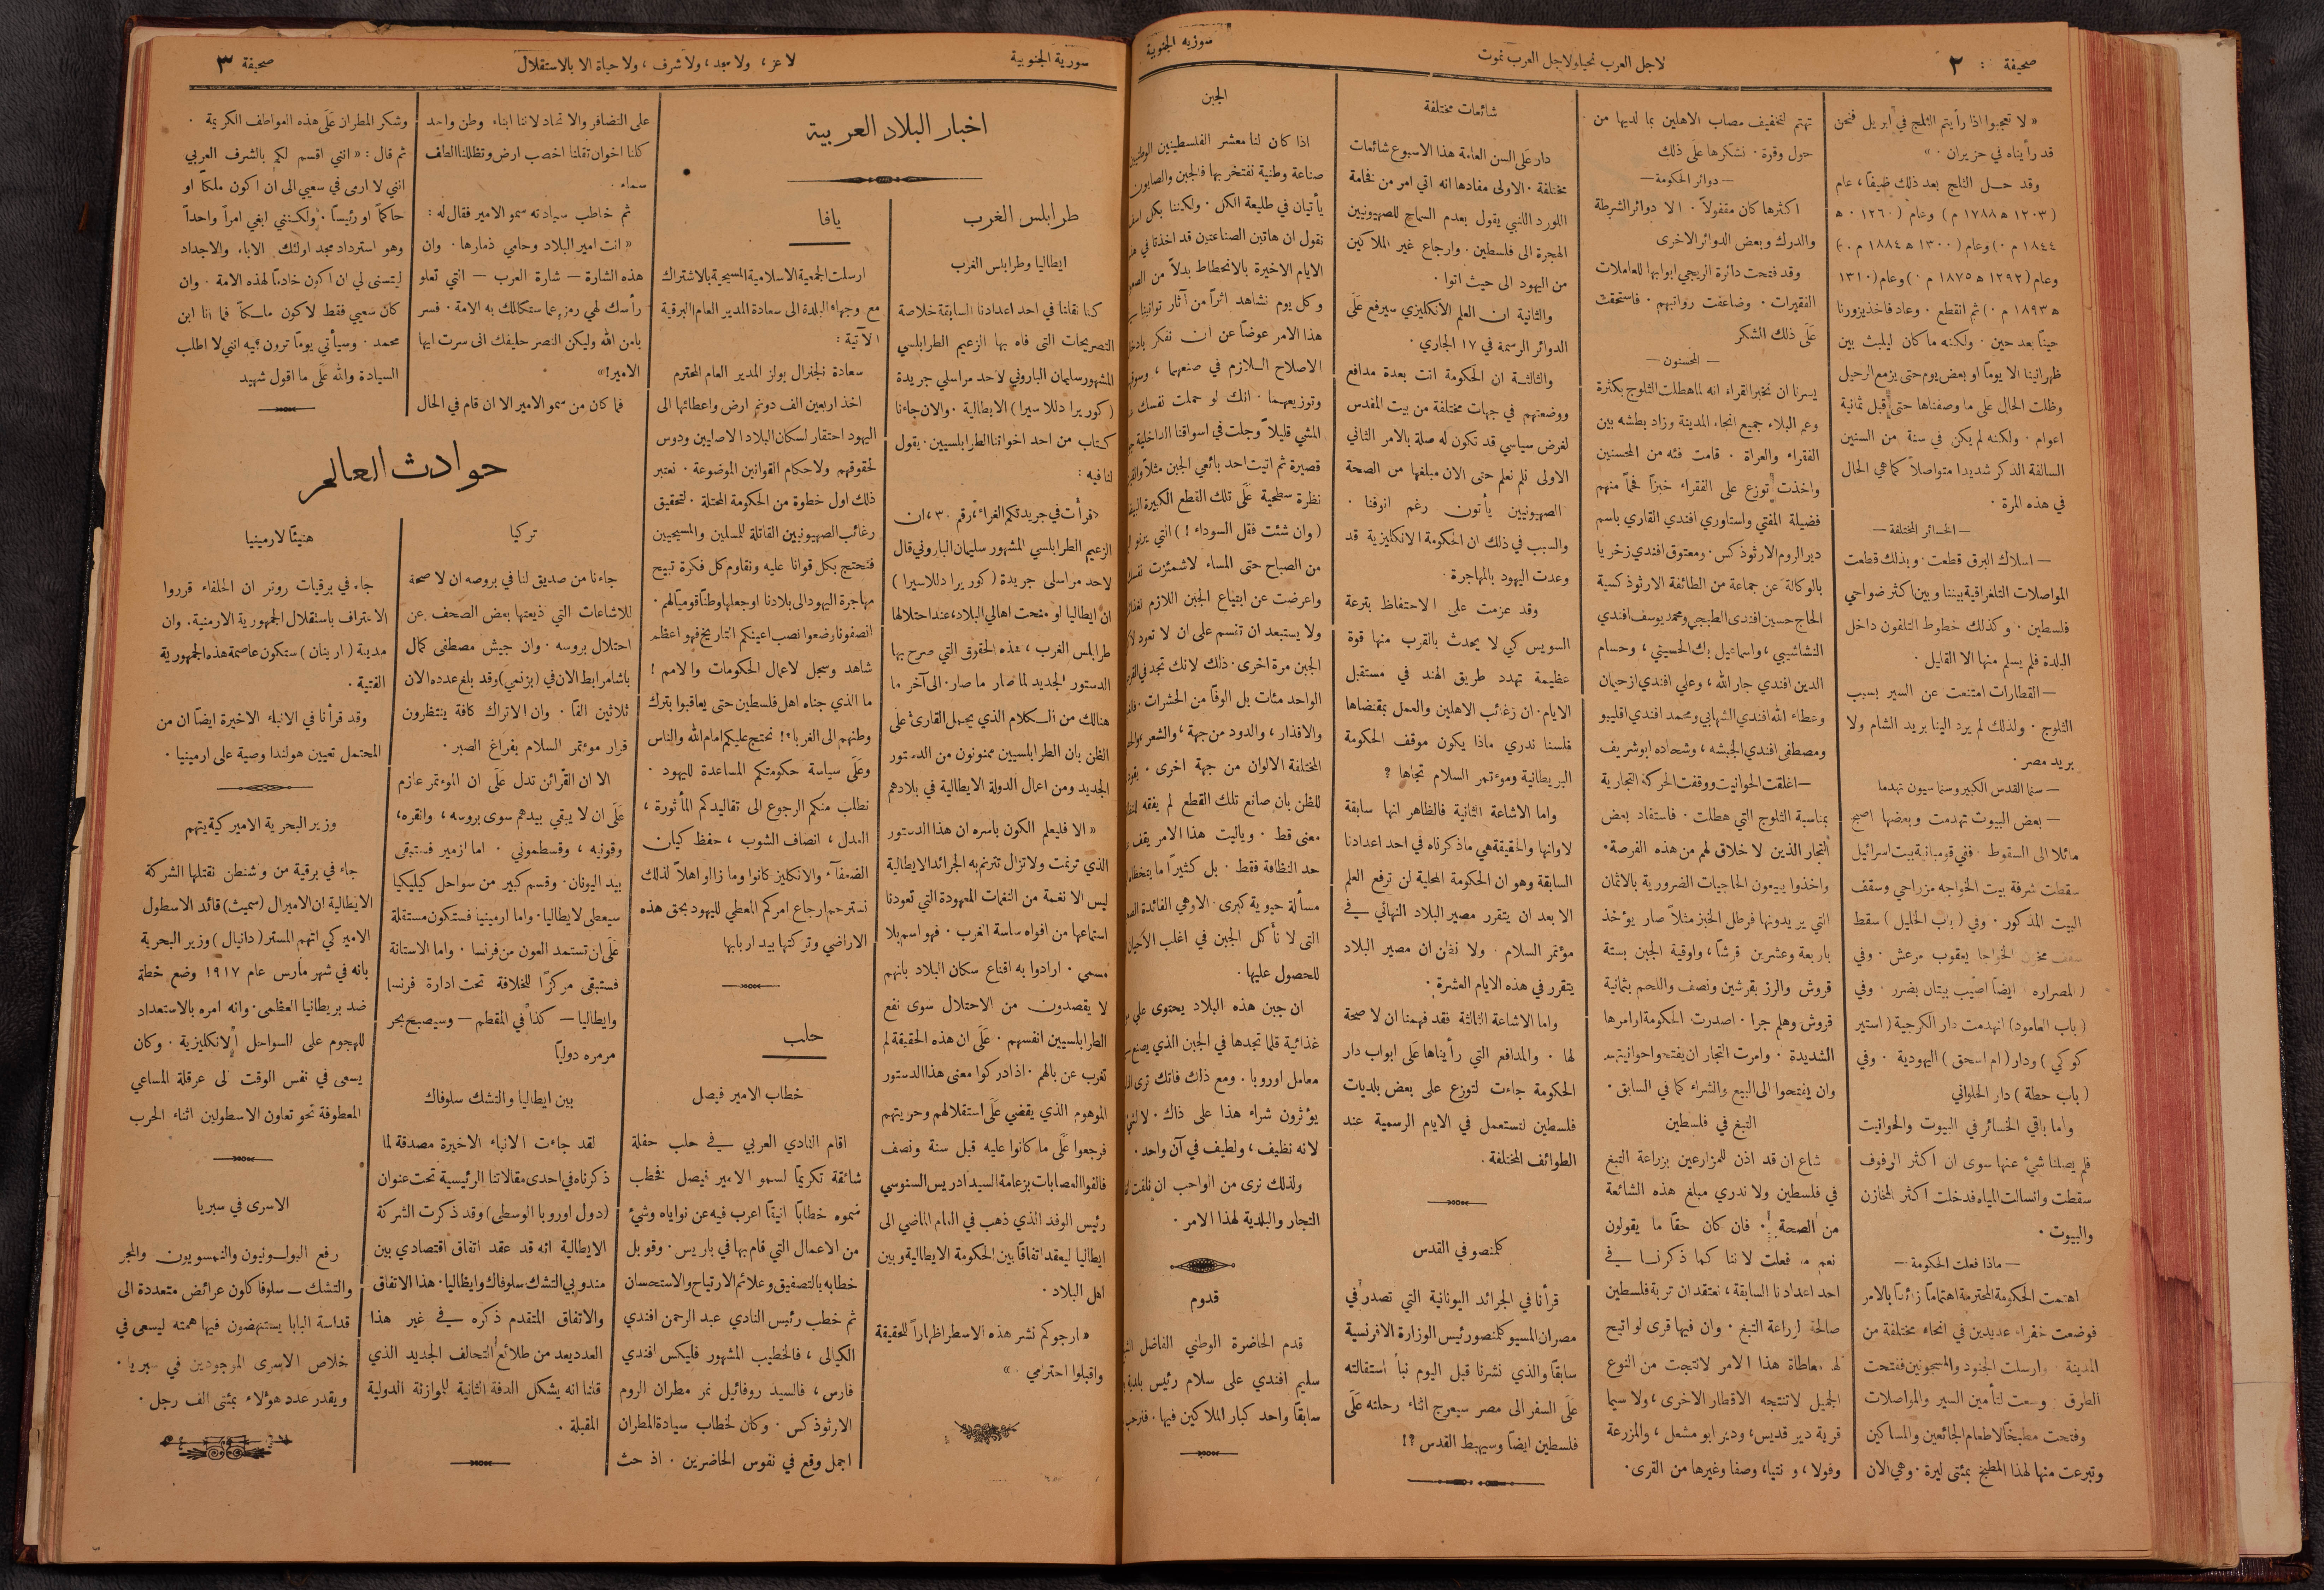 صحيفة : ٢
لاجل العرب نحيا ولاجل العرب نموت
سورية الجنوبية
« لا تعجبوا اذا رأيتم الثلج في ابريل فنحن
قد رأيناه في حزيران . »
وقد حـل الثلج بعد ذلك ضيفاً، عام
( ١٢٠٣ ه ١٧٨٨ م ) وعام ( ١٢٦٠ ٠ ه
١٨٤٤ م ٠) وعام ( ١٣٠٠ ه ١٨٨٤ م ٠)
وعام (١٢٩٢ ه ١٨٧٥ م ٠) وعام (١٣١٠
ه ١٨٩٣ م ٠) ثم انقطع . وعاد فاخذ يزورنا
حيناً بعد حين . ولكنه ما كان ليلبث بين
ظهرانينا الا يوماً او بعض يوم حتى يزمع الرحيل
وظلت الحال على ما وصفناها حتى قبل ثمانية
اعوام . ولكنه لم يكن في سنة من السنين
السالفة الذكر شديدا متواصلاً كما هي الحال
في هذه المرة .
— الخسائر المختلفة —
— اسلاك البرق قطعت . وبذلك قطعت
المواصلات التلغرافية بيننا وبين اكثر ضواحي
فلسطين . وكذلك خطوط التلفون داخل
البلدة فلم يسلم منها الا القليل .
— القطارات امتنعت عن السير بسبب
الثلوج . ولذلك لم يرد الينا بريد الشام ولا
بريد مصر .
— سنما القدس الكبير وسنما سيون تهدما
— بعض البيوت تهدمت وبعضها اصبح
مائلا الى السقوط . ففي قومبانية بيت اسرائيل
سقطت شرفة بيت الخواجه مزراحي وسقف
البيت المذكور . وفي ( باب الخليل ) سقط
سقف مخزن الخواجا يعقوب مرعش . وفي
( المصراره ) ايضاً اصيب بيتان بضرر . وفي
( باب العامود) انهدمت دار الكرجية ( استير
كوكي ) ودار ( ام اسحق ) اليهودية . وفي
( باب حطة ) دار الحلواني
واما باقي الخسائر في البيوت والحوانيت
فلم يصلنا شيء عنها سوى ان اكثر الرفوف
سقطت وانسالت المياه فدخلت اكثر المخازن
والبيوت .
— ماذا فعلت الحكومة —
اهتمت الحكومة المحترمة اهتماماً زائداً بالامر
فوضعت خفراء عديدين في انحاء مختلفة من
المدينة . وارسلت الجنود والمسجونين ففتحت
الطرق . وسعت لتأمين السير والمواصلات
وفتحت مطبخاً لاطعام الجائعين والمساكين
وتبرعت منها لهذا المطبخ بمئتى ليرة . وهي الان
تهتم لتخفيف مصاب الاهلين بما لديها من
حول وقوة . نشكرها على ذلك
— دوائر الحكومة —
اكثرها كان مقفولاً . الا دوائر الشرطة
والدرك وبعض الدوائر الاخرى
وقد فتحت دائرة الريجي ابوابها للعاملات
الفقيرات . وضاعفت رواتبهم . فاستحقت
على ذلك الشكر
— المحسنون —
يسرنا ان نخبر القراء انه لما هطلت الثلوج بكثرة
وعم البلاء جميع انحاء المدينة وزاد بطشه بين
الفقراء والعراة . قامت فئه من المحسنين
واخذت توزع على الفقراء خبزاً فحماً منهم
فضيلة المفتي واستاوري افندي القاري باسم
دير الروم الارثوذكس . ومعتوق افندي زخريا
بالوكالة عن جماعة من الطائفة الارثوذكسية
الحاج حسين افندى الطبجي ومحمد يوسف افندي
النشاشيبي ، واسماعيل بك الحسيني ، وحسام
الدين افندي جار الله ، وعلي افندي ازحيمان
وعطاء الله افندي الشهابي ومحمد افندي اقليبو
ومصطفى افندي الجبشه ، وشحاده ابو شريف
— اغلقت الحوانيت ووقفت الحركة التجارية
بمناسبة الثلوج التي هطلت . فاستفاد بعض
التجار الذين لا خلاق لهم من هذه الفرصة .
واخذوا يبيعون الحاجيات الضرورية بالاثمان
التي يريدونها فرطل الخبز مثلاً صار يؤخذ
باربعة وعشرين قرشاً، واوقية الجبن بستة
قروش والرز بقرشين ونصف واللحم بثمانية
قروش وهلم جرا . اصدرت الحكومة اوامرها
الشديدة . وامرت التجار ان يفتحوا حوانيتهم
وان يفتحوا الى البيع والشراء كما في السابق .
التبغ في فلسطين
شاع ان قد اذن للمزارعين بزراعة التبغ
في فلسطين ولا ندري مبلغ هذه الشائعة
من الصحة . فان كان حقاً ما يقولون
نعم ما فعلت لاننا كما ذكرنا في
احد اعدادنا السابقة ، نعتقد ان تربة فلسطين
صالحة لزراعة التبغ . وان فيها قرى لو اتيح
لها معاطاة هذا الامر لانتجت من النوع
الجميل لا تنتجه الاقطار الاخرى ، ولا سيما
قرية دير قديس ، ودير ابو مشعل ، والمزرعة
وفولا ، و نتيا، وصفا وغيرها من القرى .
شائعات مختلفة
دار على السن العامة هذا الاسبوع شائعات
مختلفة . الاولى مفادها انه اتي امر من فخامة
اللورد اللنبي يقول بعدم السماح للصهيونيين
الهجرة الى فلسطين . وارجاع غير الملاكين
من اليهود الى حيث اتوا .
والثانية ان العلم الانكليزي سيرفع على
الدوائر الرسمة في ١٧ الجاري .
والثالثـة ان الحكومة اتت بعدة مدافع
ووضعتهم في جهات مختلفة من بيت المقدس
لغرض سياسي قد تكون له صلة بالامر الثاني
الاولى فلم نعلم حتى الان مبلغها من الصحة
الصهيونيين يأتون رغم انوفنا .
والسبب في ذلك ان الحكومة الانكليزية قد
وعدت اليهود بالمهاجرة .
وقد عزمت على الاحتفاظ بترعة
السويس كي لا يحدث بالقرب منها قوة
عظيمة تهدد طريق الهند في مستقبل
الايام . ان رغائب الاهلين والعمل بمقتضاها
فلسنا ندري ماذا يكون موقف الحكومة
البريطانية ومؤتمر السلام تجاها ؟
واما الاشاعة الثانية فالظاهر انها سابقة
لاوانها والحقيقة هي ما ذكرناه في احد اعدادنا
السابقة وهو ان الحكومة المحلية لن ترفع العلم
الا بعد ان يتقرر مصير البلاد النهائي في
مؤتمر السلام . ولا نظن ان مصير البلاد
يتقرر في هذه الايام العشرة .
واما الاشاعة الثالثة فقد فهمنا ان لا صحة
لها . والمدافع التي رأيناها على ابواب دار
الحكومة جاءت لتوزع على بعض بلديات
فلسطين لتستعمل في الايام الرسمية عند
الطوائف المختلفة .
كلمنصو في القدس
قرأنا في الجرائد اليونانية التي تصدر في
مصر ان المسيو كلمنصو رئيس الوزارة الافرنسية
سابقاً والذي نشرنا قبل اليوم نبأ استقالته
على السفر الى مصر سيعرج اثناء رحلته على
فلسطين ايضاً وسيهبط القدس ؟!
الجبن
اذا كان لنا معشر الفلسطينيين الوطنيين
صناعة وطنية نفتخر بها فالجبن والصابون
يأتيان في طليعة الكل . ولكننا بكل اسف
نقول ان هاتين الصناعتين قد اخذتا في
الايام الاخيرة بالانحطاط بدلاً من
وكل يوم نشاهد اثراً من آثار توانينا
هذا الامر عوضاً عن ان نفكر
الاصلاح اللازم في صنعهما ،
وتوزيعهما . انك لو حملت نفسك
المشي قليلاً وجلت في اسواقنا الداخلية
قصيرة ثم اتيت احد بائعي الجبن مثلاً
نظرة سطحية على تلك القطع الكبيرة
( وان شئت فقل السوداء ! ) التي
من الصباح حتى المساء لاشمئزت نفسك
واعرضت عن ابتياع الجبن اللازم
ولا يستبعد ان تقسم على ان لا تعود
الجبن مرة اخرى . ذلك لانك تجد في
الواحد مئات بل الوفاً من الحشرات .
والاقذار ، والدود من جهة ، والشعر
المختلفة الالوان من جهة اخرى .
للظن بان صانع تلك القطع لم يفقه
معنى قط . وياليت هذا الامر يقف
حد النظافة فقط . بل كثيراً ما يتخطاه
مسألة حيوية كبرى . الا وهي الفائدة
التى لا نأكل الجبن في اغلب الاحيان
للحصول عليها .
ان جبن هذه البلاد يحتوى على
غذائية قلما تجدها في الجبن الذي يصنع
معامل اوروبا . ومع ذلك فانك ترى
يؤثرون شراء هذا على ذاك .
لانه نظيف ، ولطيف في آن واحد .
ولذلك نرى من الواجب ان نلفت
التجار والبلدية لهذا الامر .
قدوم
قدم الحاضرة الوطني الفاضل
سليم افندي على سلام رئيس بلدية
سابقاً واحد كبار الملاكين فيها .
سورية الجنوبية
لا عز، ولا مجد، ولا شرف ، ولا حياة الا بالاستقلال
صحيفة ٣
اخبار البلاد العربية
طرابلس الغرب
ايطاليا وطرابلس الغرب
كنا نقلنا في احد اعدادنا السابقة خلاصة
التصريحات التى فاه بها الزعيم الطرابلسي
المشهور سليمان الباروني لاحد مراسلي جريدة
( كوريرا دللا سيرا ) الايطالية . والان جاءنا
كتاب من احد اخواننا الطرابلسيين . يقول
لنا فيه :
« قرأت في جريدتكم الغراء رقم ٣٠ ، ان
الزعيم الطرابلسي المشهور سليمان الباروني قال
لاحد مراسلى جريدة ( كوريرا دللاسيرا )
ان ايطاليا لو منحت اهالي البلاد ، عند احتلالها
طرابلس الغرب ، هذه الحقوق التي صرح بها
الدستور الجديد لما صار ما صار . الى آخر ما
هنالك من الكلام الذي يحمل القارئ على
الظن بان الطرابلسيين ممنونون من الدستور
الجديد ومن اعمال الدولة الايطالية في بلادهم
« الا فليعلم الكون باسره ان هذا الدستور
الذي ترنمت ولا تزال تترنم به الجرائد الايطالية
ليس الا نغمة من النغمات المعهودة التي تعودنا
استماعها من افواه ساسة الغرب . فهو اسم بلا
مسمى . ارادوا به اقناع سكان البلاد بانهم
لا يقصدون من الاحتلال سوى نفع
الطرابلسيين انفسهم . على ان هذه الحقيقة لم
تغرب عن بالهم . اذ ادركوا معنى هذا الدستور
الموهوم الذي يقضي على استقلالهم وحريتهم
فرجعوا على ما كانوا عليه قبل سنة ونصف
فالفوا العصابات بزعامة السيد ادريس السنوسي
رئيس الوفد الذي ذهب في العام الماضي الى
ايطاليا ليعقد اتفاقاً بين الحكومة الايطالية وبين
اهل البلاد .
« ارجوكم نشر هذه الاسطر اظهاراً للحقيقة
واقبلوا احترامي . »
يافا
ارسلت الجمعية الاسلامية المسيحية بالاشتراك
مع وجهاء البلدة الى سعادة المدير العام البرقية
الآتية :
سعادة الجنرال بولز المدير العام المحترم
اخذ اربعين الف دونم ارض واعطائها الى
اليهود احتقار لسكان البلاد الاصليين ودوس
لحقوقهم ولاحكام القوانين الموضوعة . نعتبر
ذلك اول خطوة من الحكومة المحتلة . لتحقيق
رغائب الصهيونيين القاتلة للمسلمين والمسيحيين
فنحتج بكل قوانا عليه ونقاوم كل فكرة تبيح
مهاجرة اليهود الى بلادنا او جعلها وطناً قومياً لهم .
انصفونا وضعوا نصب اعينكم التاريخ فهو اعظم
شاهد وسجل لاعمال الحكومات والامم !
ما الذي جناه اهل فلسطين حتى يعاقبوا بترك
وطنهم الى الغرباء ؟! نحتج عليكم امام الله والناس
وعلى سياسة حكومتكم المساعدة لليهود .
نطلب منكم الرجوع الى تقاليدكم المأثورة ،
العدل ، انصاف الشعوب ، حفظ كيان
الضعفآء والانكليز كانوا وما زالوا اهلاً لذلك
نسترحم ارجاع امركم المعطي لليهود بحق هذه
الاراضي وتركتها بيد اربابها
حلب
خطاب الامير فيصل
اقام النادي العربي في حلب حفلة
شائقة تكريماً لسمو الامير فيصل فخطب
سموه خطاباً انيقاً اعرب فيه عن نواياه وشئ
من الاعمال التي قام بها في باريس . وقوبل
خطابه بالتصفيق وعلائم الارتياح والاستحسان
ثم خطب رئيس النادي عبد الرحمن افندي
الكيالى ، فالخطيب المشهور فليكس افندي
فارس ، فالسيد روفائيل نمر مطران الروم
الارثوذكس . وكان لخطاب سيادة المطران
اجمل وقع في نفوس الحاضرين . اذ حث
على التضافر والاتحاد لاننا ابناء وطن واحد
كلنا اخوان تقلنا اخصب ارض وتظللنا الطف
سماء .
ثم خاطب سيادته سمو الامير فقال له :
« انت امير البلاد وحامي ذمارها . وان
هذه الشارة — شارة العرب — التي تعلو
رأسك لهي رمز عما ستكللك به الامة . فسر
بامن الله وليكن النصر حليفك انى سرت ايها
الامير ! »
فما كان من سمو الامير الا ان قام في الحال
وشكر المطران على هذه العواطف الكريمة .
ثم قال : « انني اقسم لكم بالشرف العربي
انني لا ارمى في سعيي الى ان اكون ملكاً او
حاكماً او رئيساً . ولكـنني ابغي امراً واحداً
وهو استرداد مجد اولئك الاباء والاجداد
ليتسنى لي ان اكون خادماً لهذه الامة . وان
كان سعيي فقط لاكون ملكاً فما انا ابن
محمد . وسيأتي يوماً ترون فيه انني لا اطلب
السيادة والله على ما اقول شهيد
حوادث العالم
تركيا
جاءنا من صديق لنا في بروصه ان لا صحة
للاشاعات التي تذيعها بعض الصحف عن
احتلال بروسه . وان جيش مصطفى كمال
باشا مرابط الان في (بزنعي) وقد بلغ عدده الان
ثلاثين الفاً . وان الاتراك كافة ينتظرون
قرار مؤتمر السلام بفراغ الصبر .
الا ان القرائن تدل على ان المؤتمر عازم
على ان لا يبقي بيدهم سوى بروسه ، وانقره،
وقونيه ، وقسطموني . اما ازمير فستبقى
بيد اليونان . وقسم كبير من سواحل كيليكيا
سيعطى لايطاليا . واما ارمينيا فستكون مستقلة
على ان تستمد العون من فرنسا . واما الاستانة
فستبقى مركزاً للخلافة تحت ادارة فرنسا
وايطاليا — كذا في المقطم — وسيصبح بحر
مرمره دولياً
بين ايطاليا والتشك سلوفاك
لقد جاءت الانباء الاخيرة مصدقة لما
ذكرناه في احدى مقالاتنا الرئيسية تحت عنوان
(دول اوروبا الوسطى) وقد ذكرت الشركة
الايطالية انه قد عقد اتفاق اقتصادي بين
مندوبي التشك سلوفاك وايطاليا . هذا الاتفاق
والاتفاق المتقدم ذكره في غير هذا
العدد يعد من طلائع التحالف الجديد الذي
قلنا انه يشكل الدفة الثانية للموازنة الدولية
المقبلة .
هنيئاً لارمينيا
جاء في برقيات روتر ان الحلفاء قرروا
الاعتراف باستقلال الجمهورية الارمنية . وان
مدينة ( اريفان ) ستكون عاصمة هذه الجمهورية
الفتية .
وقد قرأنا في الانباء الاخيرة ايضاً ان من
المحتمل تعيين هولندا وصية على ارمينيا .
وزير البحرية الاميركية يتهم
جاء في برقية من وشنطن نقلتها الشركة
الايطالية ان الاميرال (سميث) قائد الاسطول
الاميركي اتهم المستر ( دانيال ) وزير البحرية
بانه في شهر مارس عام ١٩١٧ وضع خطة
ضد بريطانيا العظمى . وانه امره بالاستعداد
للهجوم على السواحل الانكليزية . وكان
يسعى في نفس الوقت الى عرقلة المساعي
المعطوفة نحو تعاون الاسطولين اثناء الحرب
الاسرى في سبريا
رفع البولـونيون والنمسويون والمجر
والتشك — سلوفاكون عرائض متعددة الى
قداسة البابا يستنهضون فيها همته ليسعى في
خلاص الاسرى الموجودين في سبريا .
ويقدر عدد هؤلاء بمئتى الف رجل .